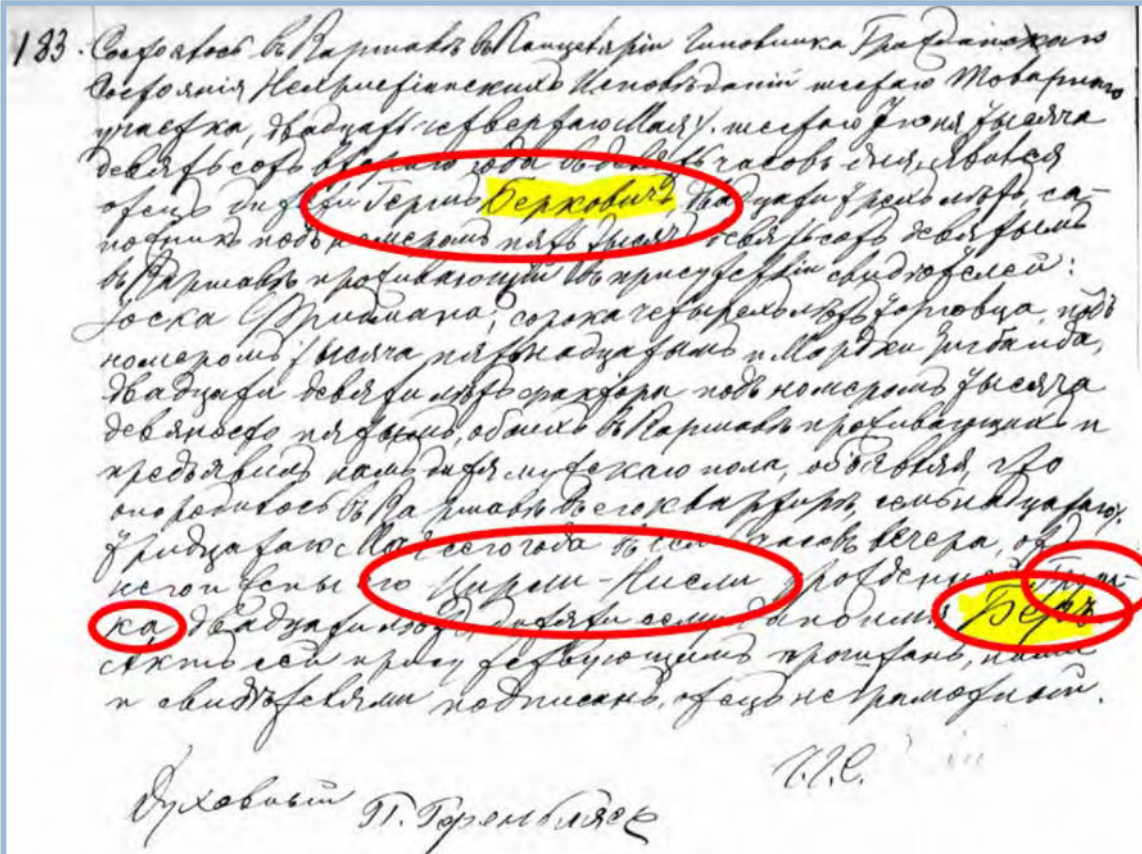 183. Состоялось въ Варшавѣ въ Канцеляріи Чиновника Гражданскаго
Состоянія Нехристіанскихъ Исповѣданій шестаго Товарнаго
участка, двадцать четвертаго Мая / шестаго Іюня тысяча
девятьсотъ втораго года въ девять часовъ дня, явился
отецъ дитяти Гершъ Берковичъ, двадцати трехъ лѣтъ, са-
пожникъ подъ номеромъ пять тысячъ девятьсотъ девятымъ
въ Варшавѣ проживающій въ присутствіи свидѣтелей:
Іоска Фридмана, сорока четырехъ лѣтъ торговца, подъ
номеромъ тысяча пятнадцатымъ и Мордки
двадцати девяти лѣтъ фактора подъ номеромъ тысяча
девяносто пятымъ, обоихъ въ Варшавѣ проживающихъ и
предъявилъ намъ дитя мужскаго пола, объявляя, что
оно родилось въ Варшавѣ въ его квартирѣ, семнадцатаго /
тридцатаго Мая сего года въ часовъ вечера, отъ
него и жены его Цирли-Нисли урожденной
ка двадцати лѣтъ, дитяти сему дано имя Беръ
Актъ сей присутствующимъ прочитанъ, нами
и свидѣтелями подписанъ, отецъ неграмотный.
Духовный П.